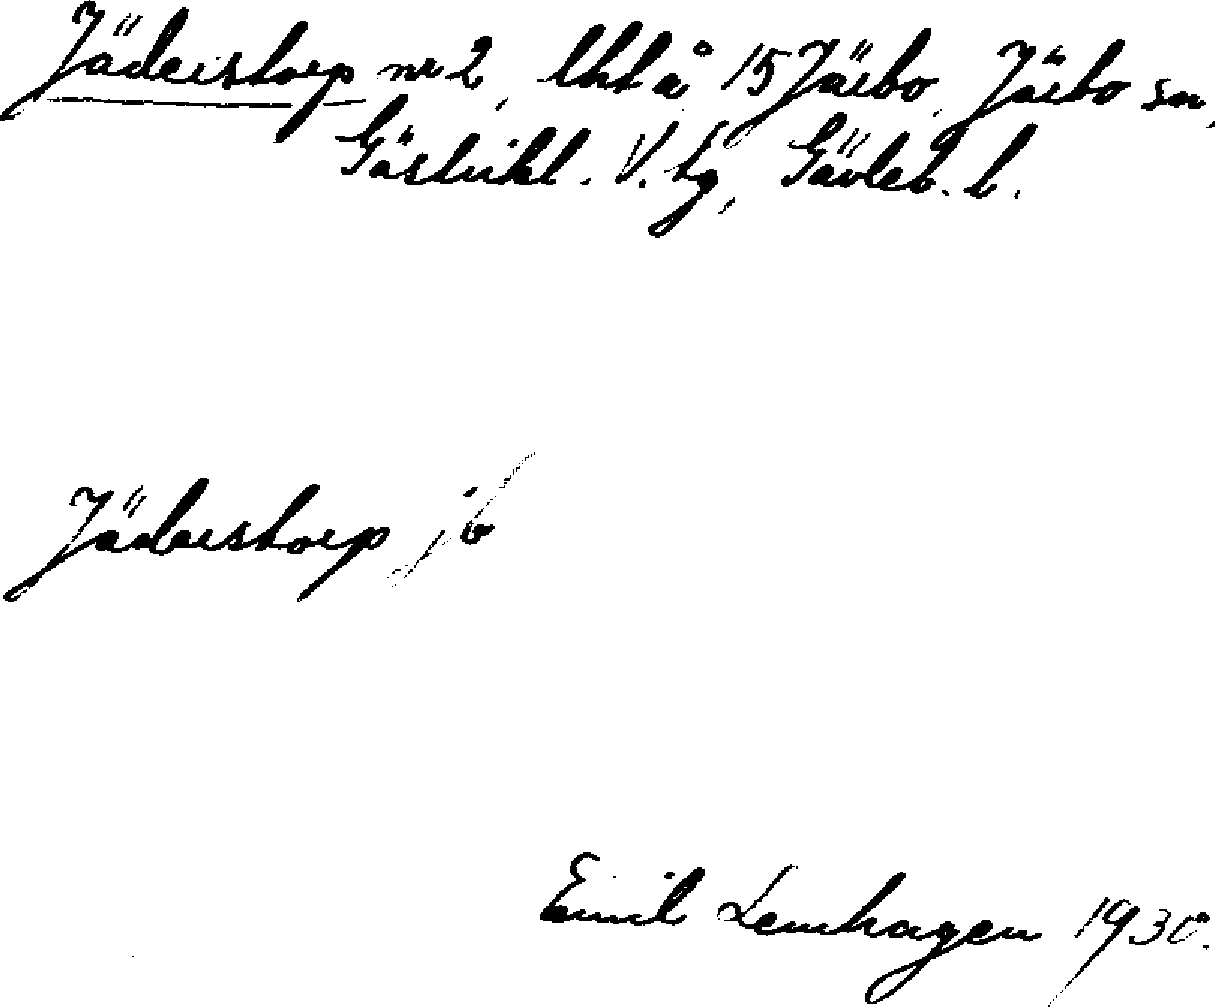 Jäderstorp nr 2, lht å 15 Järbo, Järbo sn,
Gästrikl. V. tg, Gävleb. l.
Jäderstorp jb
Emil Lemhagen 1930.